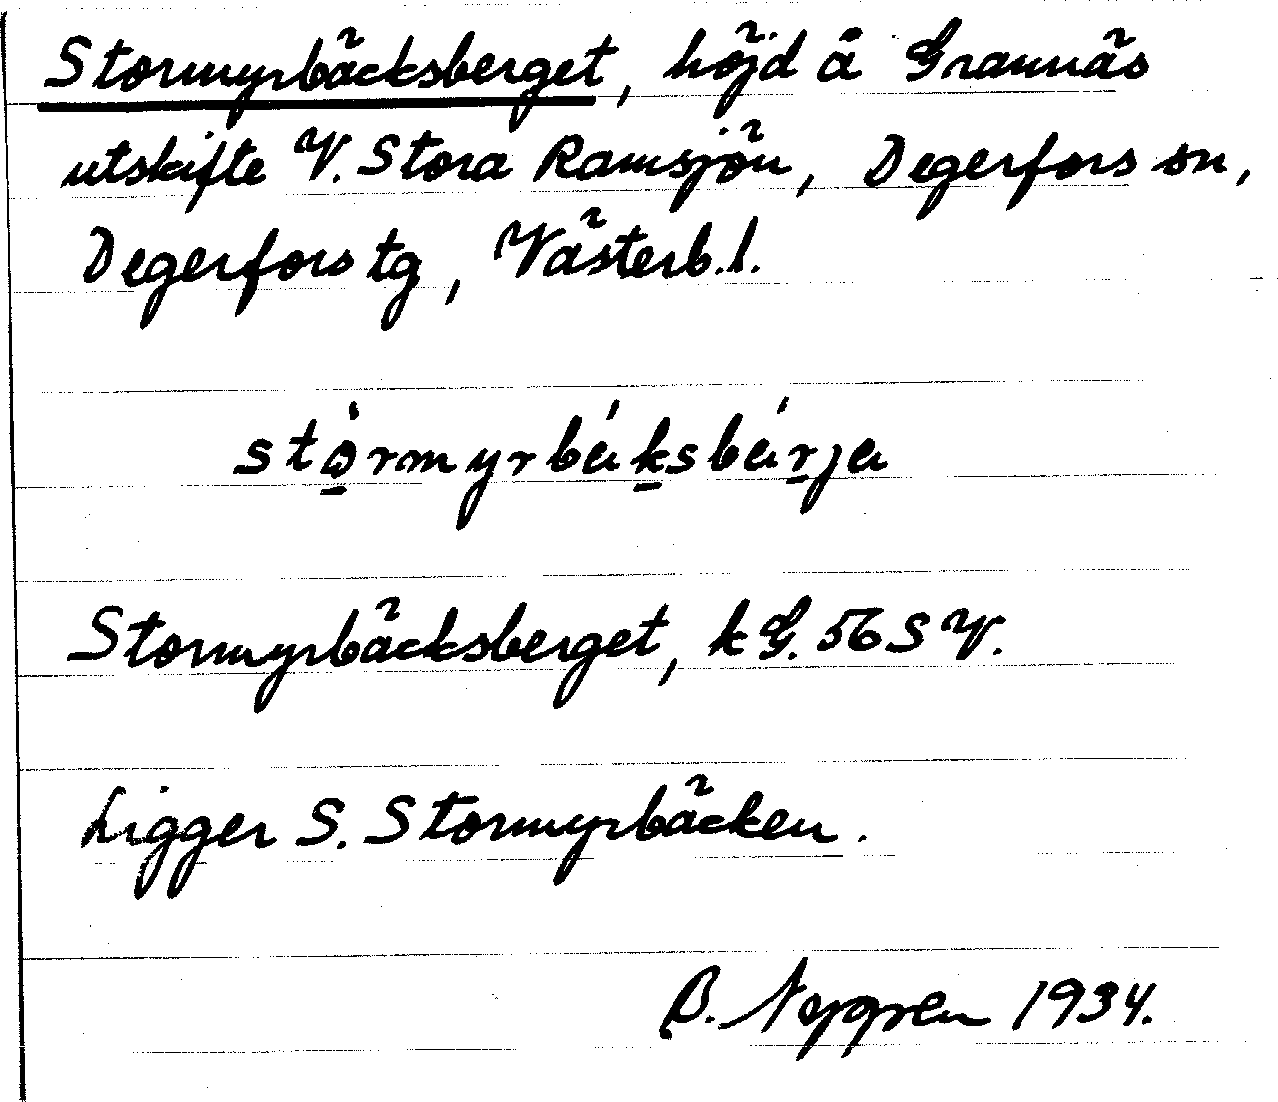 Stormyrbäcksberget, höjd å Grannäs
utskifte V. Stora Ramsjön, Degerfors sn,
Degerfors tg, Västerb.l.
stòrmyrbä́ksbä́rjä
Stormyrbäcksberget, kG. 56 SV.
Ligger S. Stormyrbäcken.
B. Nygren 1934.